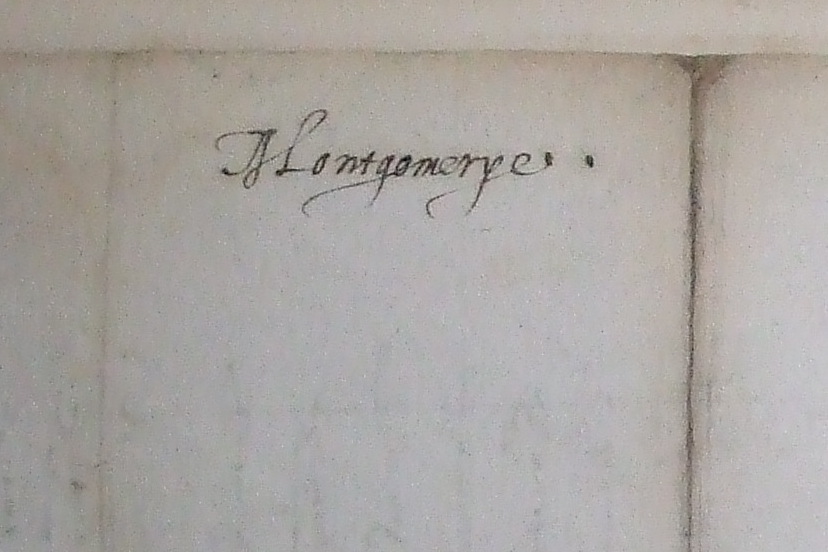 Montgomerye . .